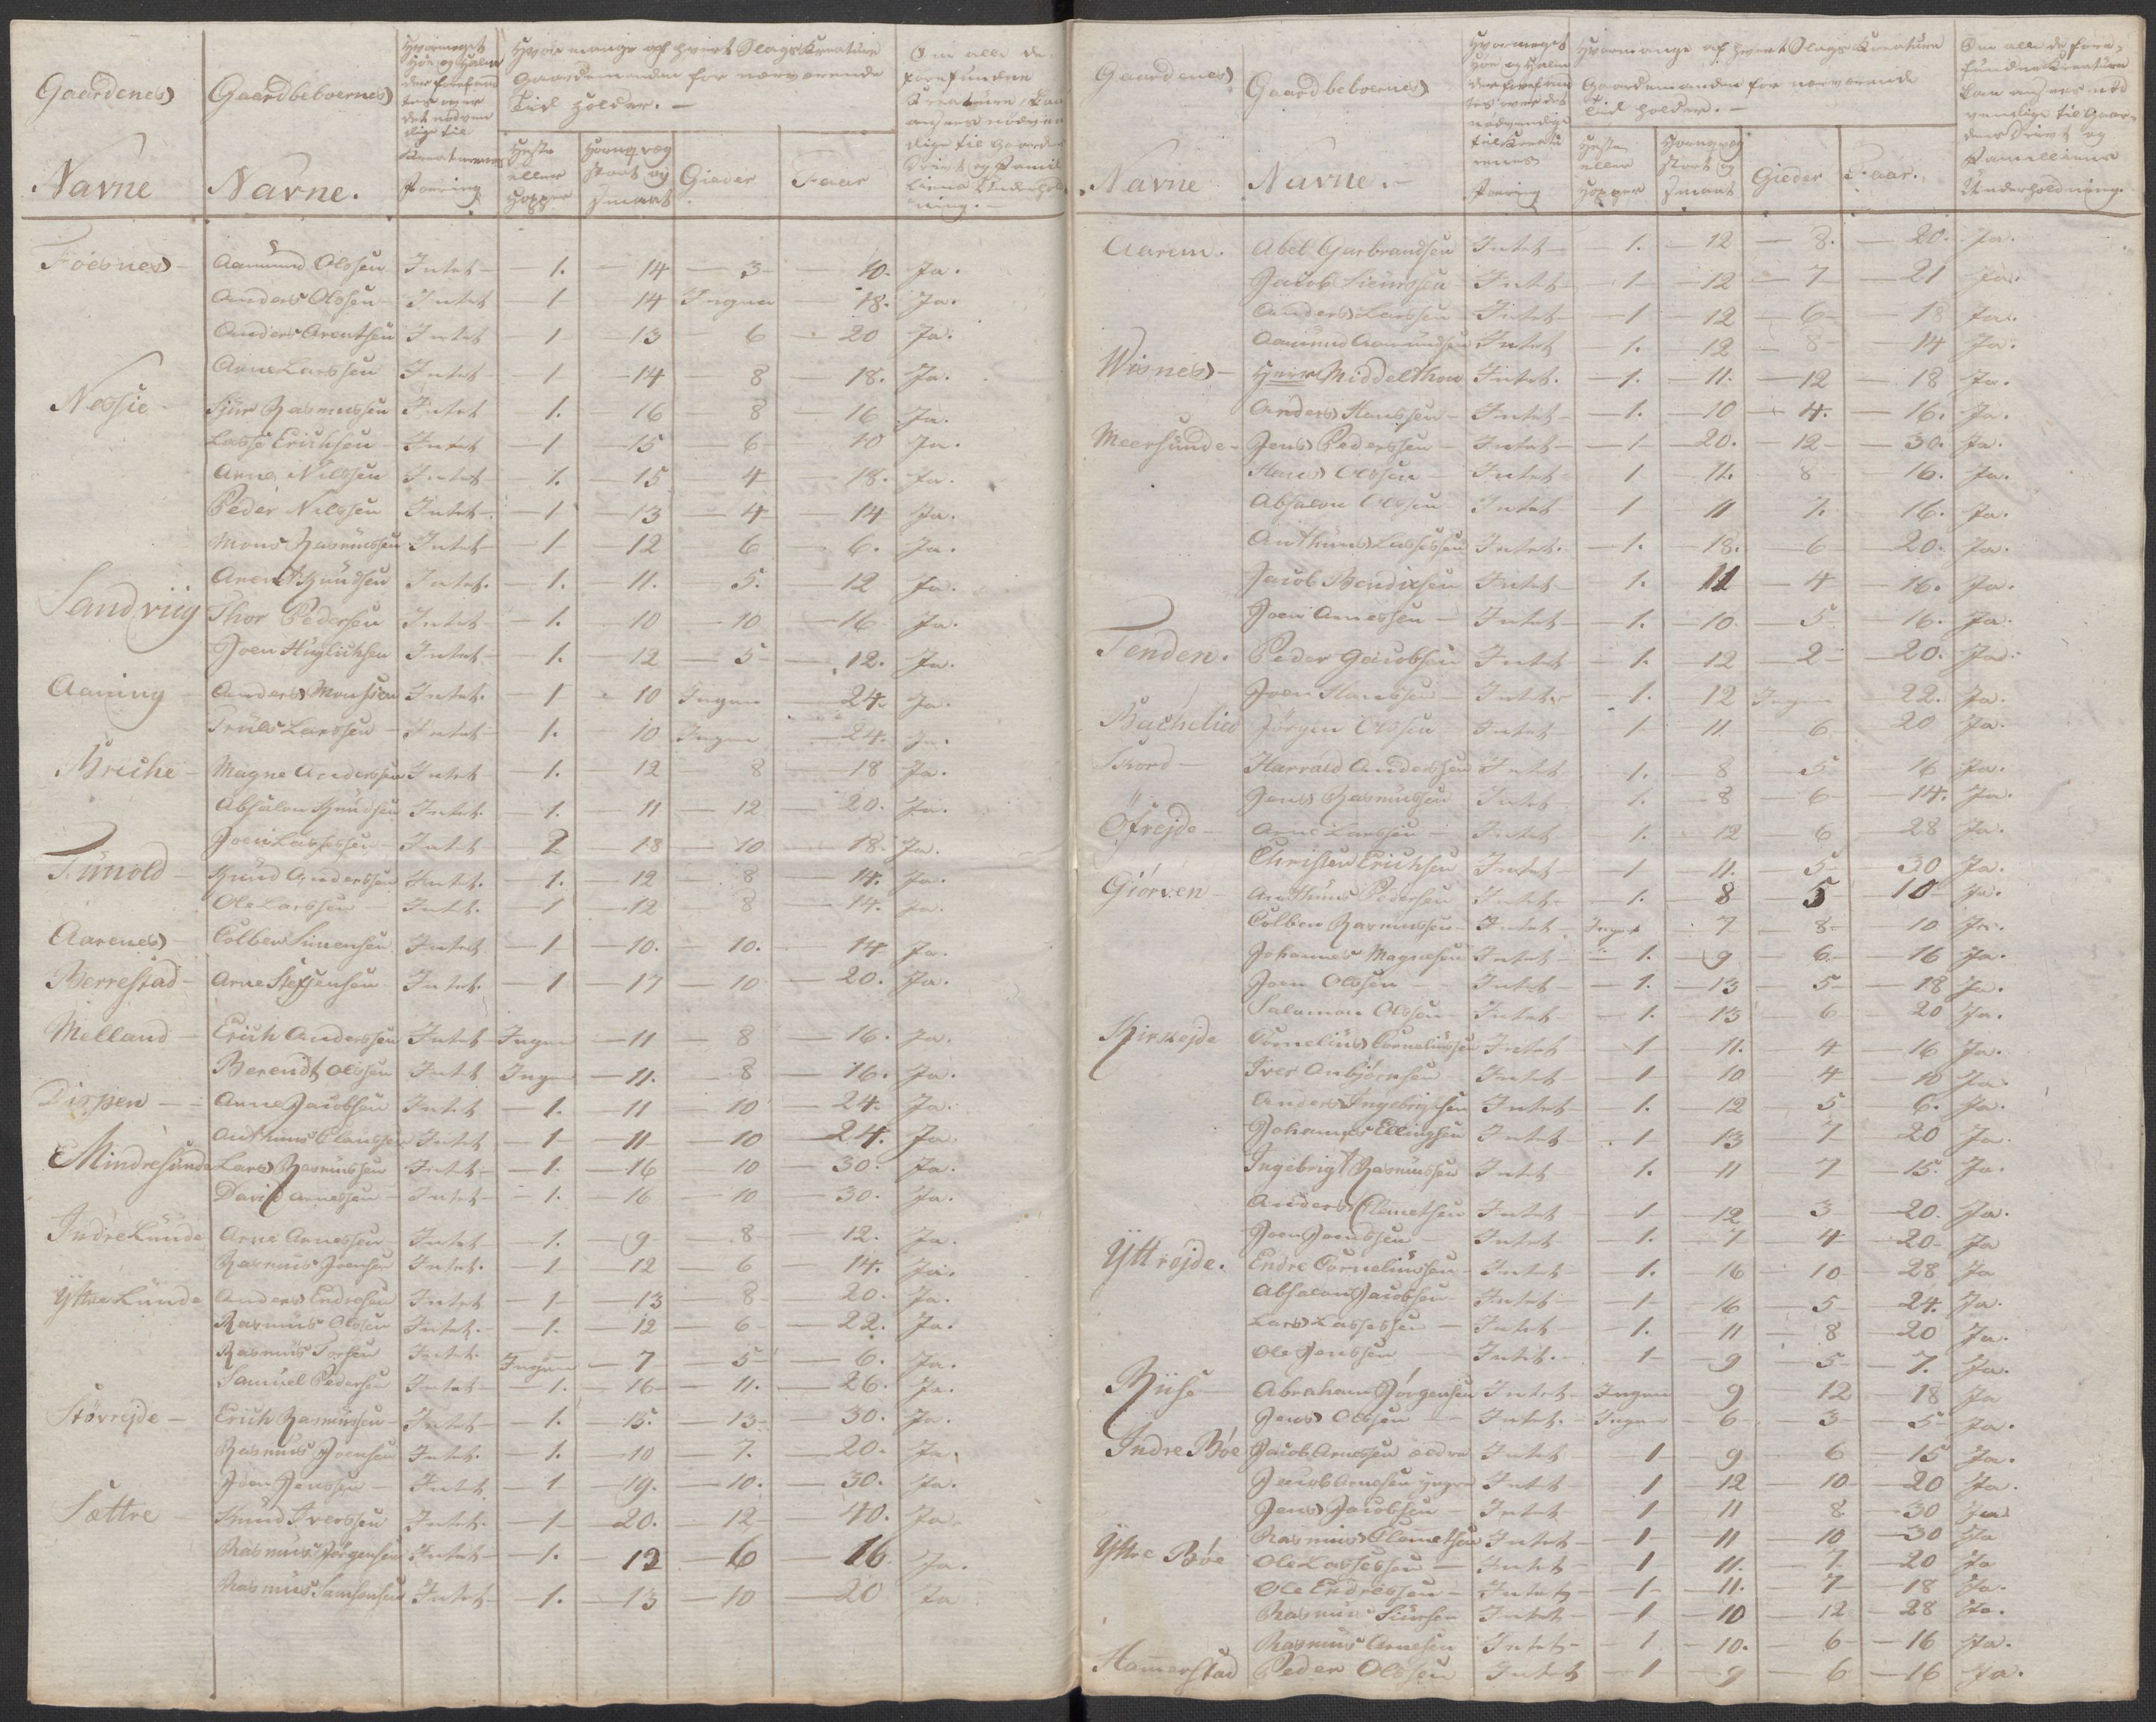 Gaardenes Navne | Gaardbeboernes Navne. | Hvormeget Höe og Halm der forefandtes over det nødvendige til Kreaturenes Foering | Hvor mange af hvert Slags Kreature Gaardemanden for nærværende Tid holder. — | Om alle de forefundne Kreature kan ansees nødvendige til Gaardens Drivt og Familiens Underholdning. —
Heste eller Hopper | Hornqvæg stort og smaat | Gieder | Faar
Föesnes — Aamund Olssen Intet — 1. — 14 — 3 — 10. Ja.
Anders Olssen Intet — 1 — 14 Ingen — 18. Ja.
Anders Arentsen Intet — 1 — 13 — 6 — 20 Ja.
Arne Larssen Intet — 1 — 14 — 8 — 18. Ja.
Nessie Siur Rasmussen Intet 1. — 16 — 8 — 16 Ja.
Lasse Erichsen Intet — 1 — 15 — 6 — 10 Ja.
Arne Nilssen Intet — 1. — 15 — 4 — 18. Ja.
Peder Nilssen Intet — 1 — 13 — 4 — 14 Ja.
Mons Rasmussen Intet — 1 — 12 6 — 6. Ja.
Sandviig Arent Knudsen Intet. — 1. — 11. — 5. — 12 Ja.
Thor Pedersen Intet — 1. — 10 — 10 — 16 Ja.
Joen Huglichsen Intet — 1. — 12 — 5 — 12. Ja.
Aaning — Anders Monsson Intet. — 1 — 10 Ingen — 24. Ja.
Truls Larssen Intet — 1. — 10 Ingen — 24. Ja.
Breche — Magne Anderssen Intet — 1. — 12 — 8 — 18 Ja.
Absalon Knudsen Intet — 1. — 11 — 12 — 20. Ja.
Joen Lassesen Intet — 2 — 18 — 10 — 18. Ja.
Tunold — Knud Anderssen Intet. — 1. — 12 — 8 — 14. Ja.
Ole Larssen Intet. — 1 — 12 — 8 — 14. Ja.
Aarenes — Colben Simensen Intet — 1 — 10. — 10. — 14 Ja.
Berrestad — Arne Steffensen Intet. — 1 — 17 — 10 — 20. Ja.
Melland — Erich Anderssen Intet Ingen — 11 — 8 — 16. Ja.
Berendt Olssen Intet Ingen — 11. — 8 — 16. Ja.
Dispen — Arne Jacobsen Intet — 1. — 11 — 10 — 24. Ja.
Anthuns Claussen Intet — 1 — 11 — 10 — 24. Ja.
Mindresunde Lars Rasmussen Intet — 1. — 16 — 10 — 30. Ja.
David Arnessen Intet — 1. — 16 — 10 — 30. Ja.
Indre Lunde Arne Arnessen Intet — 1. — 9 — 8 — 12. Ja.
Rasmus Joensen Intet. — 1 — 12 — 6 — 14. Ja.
Yttre Lunde Anders Endresen Intet — 1 — 13 — 8 — 20. Ja.
Rasmus Olssen Intet. — 1. — 12 — 6 — 22. Ja.
Rasmus Torssen Intet. Ingen — 7 — 5 — 6. Ja.
Samuel Pedersen Intet — 1. — 16 — 11. — 26. Ja.
Störrejde — Erich Rasmussen Intet — 1. — 15. — 13 — 30. Ja.
Rasmus Joensen Intet. — 1. — 10 — 7. — 20. Ja.
Joen Jenssen Intet — 1 — 19. — 10. — 30. Ja.
Sættre — Knud Iverssen Intet. — 1 — 20. — 12 — 40. Ja.
Rasmus Jörgensen Intet — 1. — 12 — 6 — 16. Ja.
Rasmus Samsonsen Intet — 1. — 13 — 10 — 20 Ja
Gaardenes Navne | Gaardbeboernes Navne. — | Hvormeget Höe og Halm der forefandtes over det nødvendige til Kreaturenes Foering | Hvormange af hvert Slags Kreature Gaardemanden for nærværende Tid holder. — | Om alle de forefundne Kreature kan ansees nødvendige til Gaardens Drivt og Familiens Underholdning.
Heste eller Hopper | Hornqvæg stort og smaat | Gieder | Faar.
Aarem. Abel Garbrandsen Intet — 1. — 12 — 8. — 20. Ja.
Jacob Siurssen Intet — 1 — 12 — 7 — 21 Ja.
Anders Larssen Intet — 1 — 12 — 6 — 18 Ja.
Aamund Aamundsen Intet — 1. — 12 — 8 — 14 Ja.
Wisnes — Herr Middelthon Intet. — 1. — 11. — 12 — 18 Ja.
Anders Hanssen — Intet — 1. — 10 — 4. — 16. Ja.
Meersunde — Jens Pedersen — Intet — 1 — 20. — 12 — 30. Ja.
Hans Olssen — Intet 1 — 11. — 8 — 16. Ja.
Absalon Olssen Intet 1 — 11 7. — 16. Ja.
Anthuns Lassesen Intet. — 1. — 18. — 6 — 20. Ja.
Jacob Bendixsen Intet — 1. — 11 — 4 — 16. Ja.
Joen Arnessen — Intet — 1. — 10 — 5 — 16. Ja.
Tenden. Peder Jacobsen Intet — 1. — 12 — 2 — 20. Ja.
Joen Hanssen — Intet — 1. — 12 Ingen — 22. Ja.
Bachelie Jörgen Olssen — Intet 1 — 11 — 6 — 20 Ja.
Skord — Harrald Anderssen Intet 1. — 8 — 5 16 Ja.
Jens Rasmussen Intet 1. — 8 — 6 — 14. Ja.
Öfrejde — Arne Larssen — Intet 1. — 12 6 — 28 Ja.
Christen Erichsen Intet — 1 — 11. — 5 — 30 Ja.
Giörven — Anthuns Pedersen Intet — 1. — 8 — 5 — 10 Ja.
Colben Rasmussen Intet — Ingen 7 — 8 — 10 Ja.
Johannes Magnesen Intet — 1. — 9 — 6 — 16 Ja.
Joen Olssen — Intet — 1. — 13 — 5 — 18 Ja.
Salamon Olssen Intet — 1. — 13 — 6 — 20 Ja.
Kirkejde Cornelius Corneliussen Intet — 1 — 11. — 4 — 16 Ja.
Iver Anbjörnsen Intet — 1 — 10 — 4 — 10 Ja.
Anders Ingebrigtsen Intet — 1. — 12 — 5 — 6. Ja.
Johannes Ellingsen Intet — 1 — 13 — 7 — 20 Ja.
Ingebrigt Rasmussen Intet — 1. — 11 — 7 — 15. Ja.
Anders Clemetsen Intet — 1 — 12 — 3 — 20. Ja.
Joen Joenssen — Intet — 1. — 7 — 4 — 20 Ja
Yttrejde. Endre Corneliussen — Intet — 1. — 16 — 10 — 28 Ja
Absalon Jacobsen Intet — 1 — 16 — 5 — 24. Ja.
Lars Lassessen — Intet — 1. — 11 — 8 — 20 Ja.
Ole Jenssen — Intet. — 1 — 9 — 5 — 7. Ja.
Riise — Abraham Jörgensen Intet — Ingen — 9 — 12 — 18 Ja
Jens Olssen — Intet. — Ingen — 6 — 3 — 5 Ja.
Indre Böe Jacob Arnessen ældre Intet — 1 — 9 — 6 — 15 Ja.
Jacob Arnesen yngre Intet 1 — 12 — 10 — 20 Ja.
Jens Jacobsen — Intet 1 — 11 — 8 — 30 Ja
Rasmus Clemetsen Intet — 1 — 11 — 10 — 30 Ja
Yttre Böe Ole Lassessen — Intet — 1 — 11. — 7 — 20 Ja
Ole Endressen — Intet — 1 — 11. — 7 — 18 Ja.
Rasmus Siursen Intet — 1 — 10 — 12 — 28 Ja.
Rasmus Arnesen Intet — 1 — 10. — 6 — 16 Ja.
Hamerstad Peder Olssen Intet — 1 — 9 — 6 — 16 Ja.